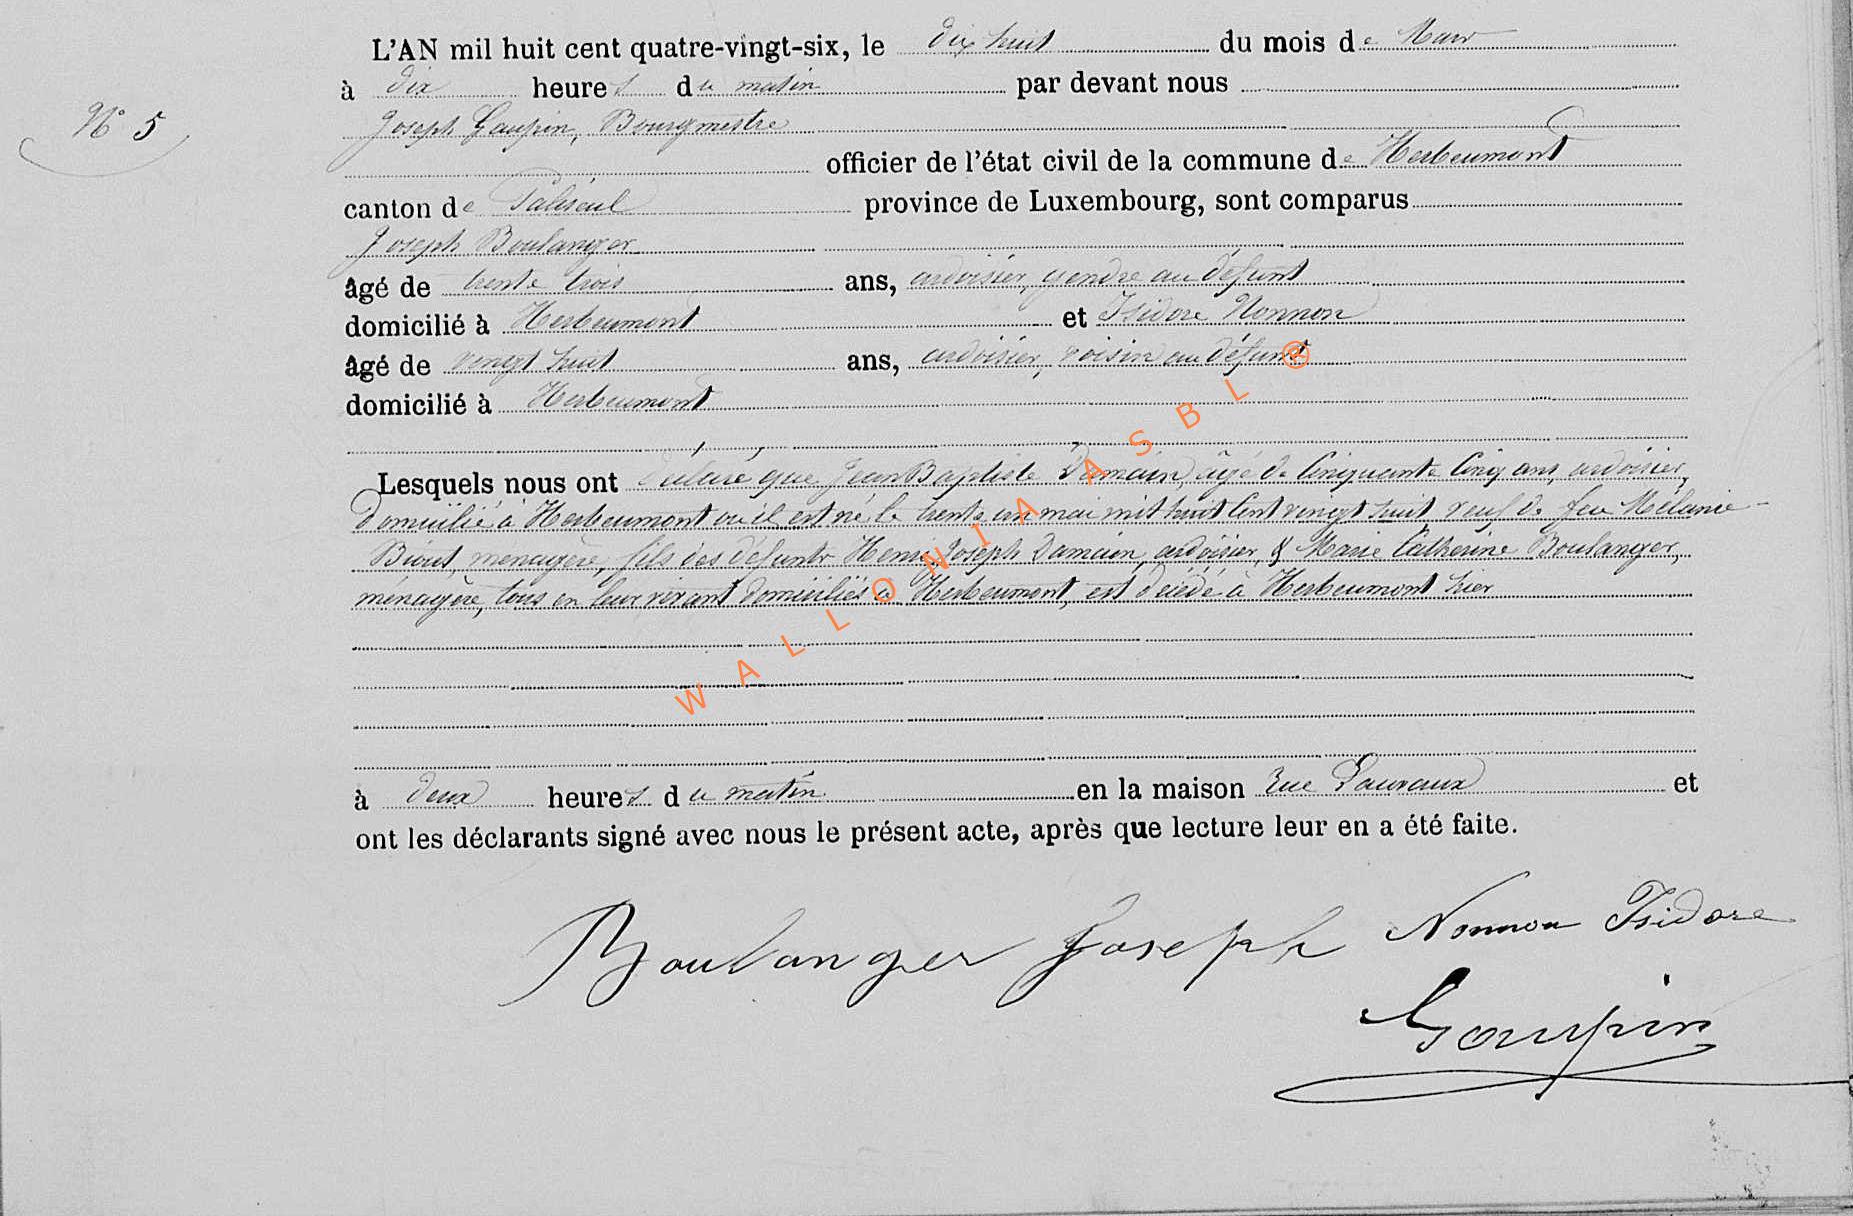 L'AN mil huit cent quatre-vingt-six, le dix huit du mois de Mars
à dix heures du matin par devant nous
N° 5
Joseph Gaupin, Bourgmestre
officier de l'état civil de la commune de Herbeumont
canton de Paliseul province de Luxembourg, sont comparus
Joseph Boulanger
âgé de trente trois ans, ardoisier, gendre au défunt
domicilié à Herbeumont et Isidore Nonnon
âgé de vingt huit ans, ardoisier, voisin au défunt
domicilié à Herbeumont
Lesquels nous ont déclaré que Jean Baptiste Damain, âgé de Cinquante Cinq ans, ardoisier,
domicilié à Herbeumont où il est né le trente un mai mil huit Cent vingt huit veuf de feu Mélanie
ménagère, fils des défunts Henri Joseph Damain, ardoisier, & Marie Catherine Boulanger,
ménagère, tous en leur vivant domiciliés à Herbeumont, est décédé à Herbeumont hier
à deux heures du matin en la maison Rue et
ont les déclarants signé avec nous le présent acte, après que lecture leur en a été faite.
Boulanger Joseph Nonnon Isidore
Gaupin
WALLONIA ASBL ®